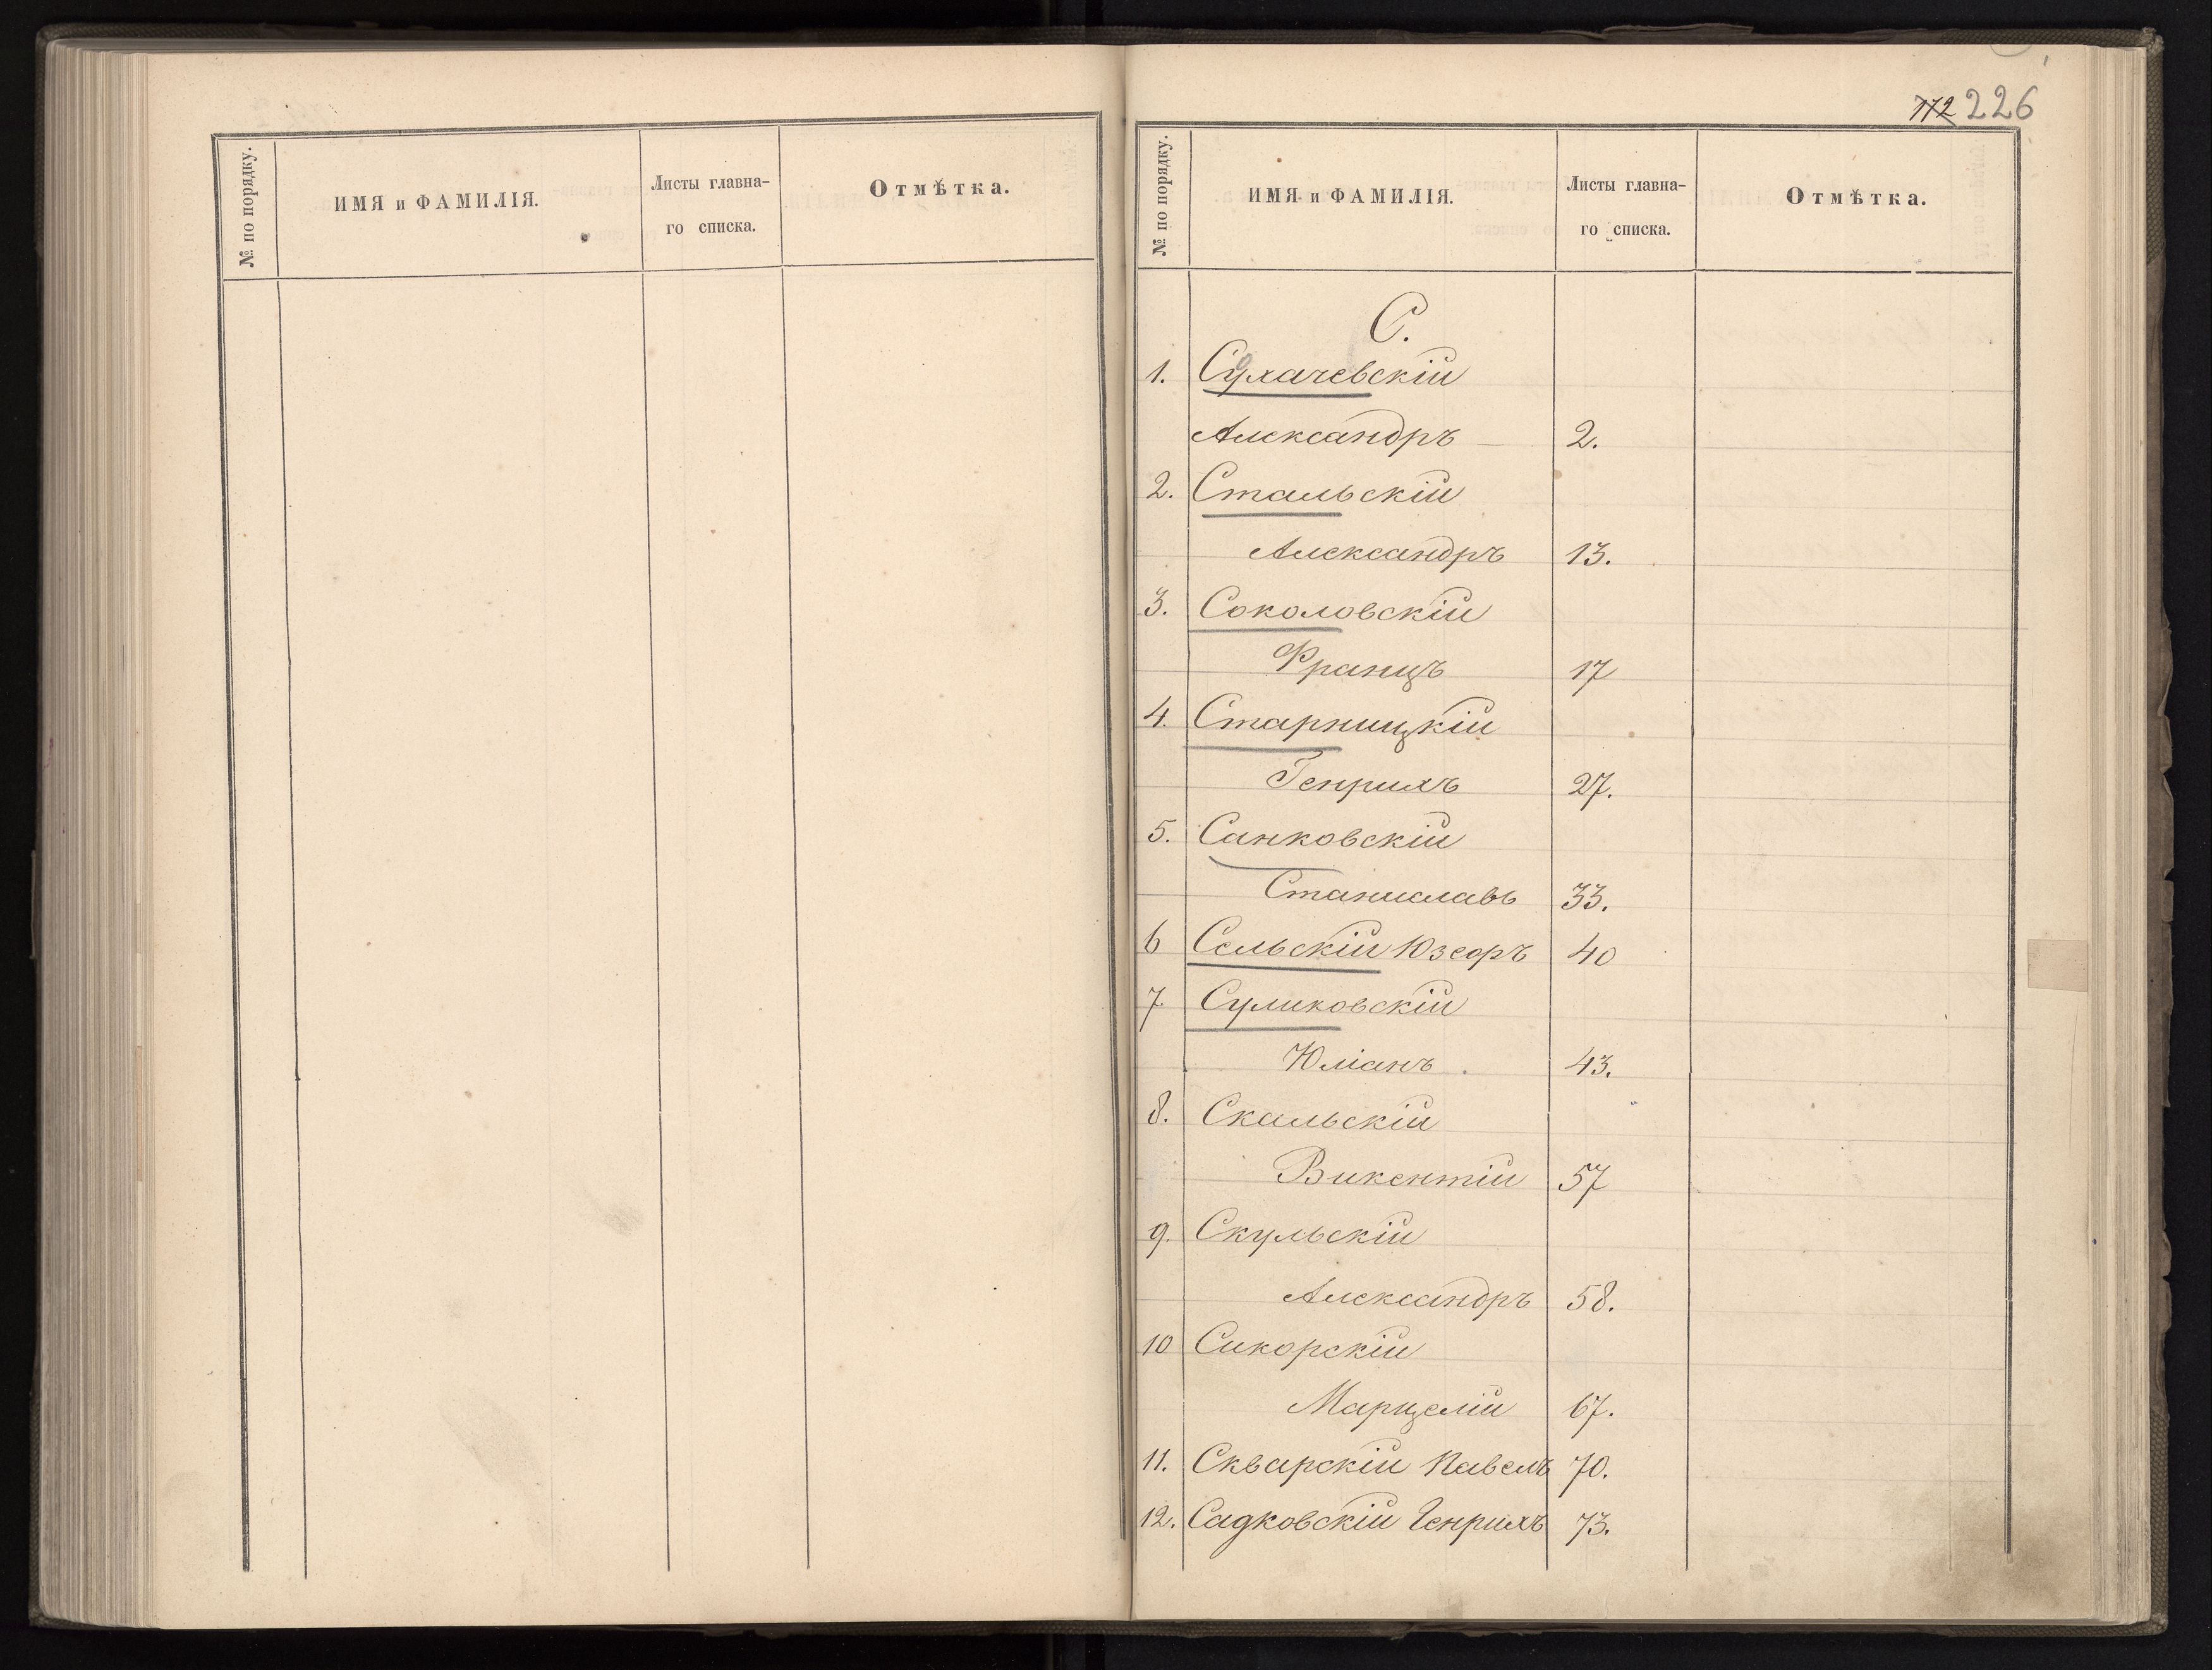 № по порядку.
ИМЯ и ФАМИЛІЯ.
Листы главна-
го списка.
Отмѣтка.
172 226
№ по порядку.
ИМЯ и ФАМИЛІЯ.
Листы главна-
го списка.
Отмѣтка.
С.
1. Сухачевскій
Александръ — 2.
2. Стальскій
Александръ 13.
3. Соколовскій
Францъ 17
4. Старницкій
Генрихъ 27.
5. Санковскій
Станиславъ 33.
6 Сельскій Юзефъ 40
7. Суликовскій
Юліанъ . 43.
8. Скальскій
Викентій 57
9. Скульскій
Александръ 58.
10 Сикорскій
Марцелій 67.
11. Скварскій Павелъ 70.
12. Садковскій Генрихъ 73.